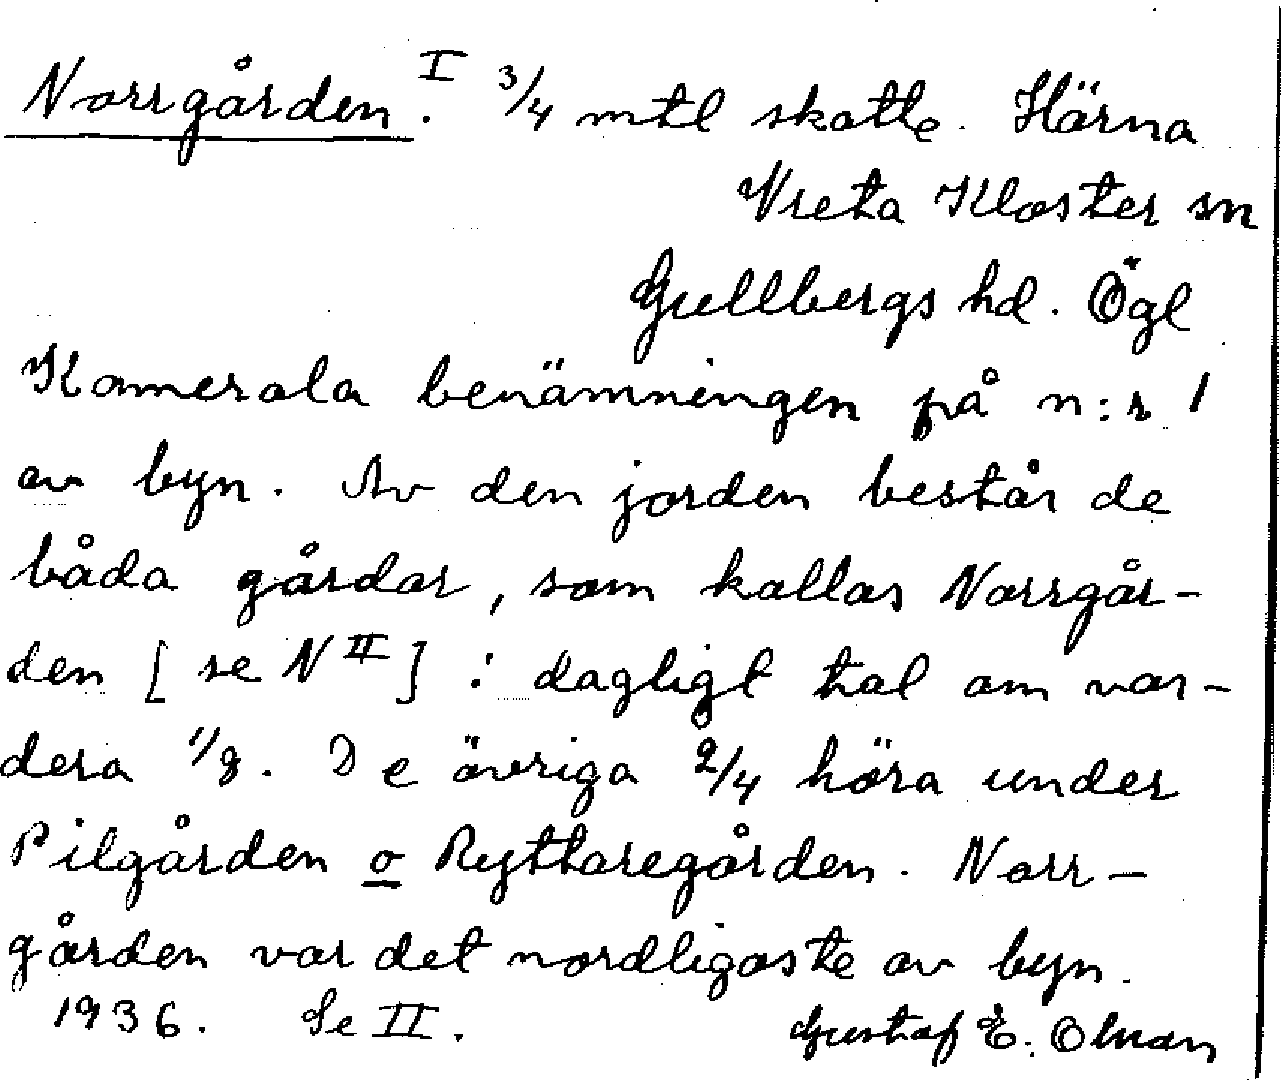 Norrgården.ᴵ 3/4 mtl skatte. Härna
Vreta Kloster sn
Gullbergs hd. Ögl
Kamerala benämningen på n:r 1
av byn. Av den jorden består de
båda gårdar, som kallas Norrgår-
den [se N ᴵᴵ] i dagligt tal om var-
dera 1/8. De övriga 2/4 höra under
Pilgården o Ryttaregården. Norr-
gården var det nordligaste av byn.
1936. Se II. Gustaf E. Olman